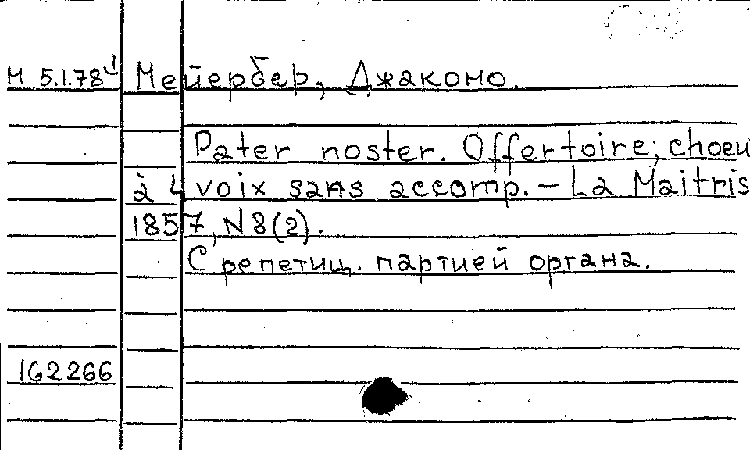 М 5.1.78 Мейербер, Джакомо.
Pater noster. Offertoire; choeu
à 4 voix sans accomp. – La Maitris
1857, N 8(2).
С репетиц. партией органа.
162266